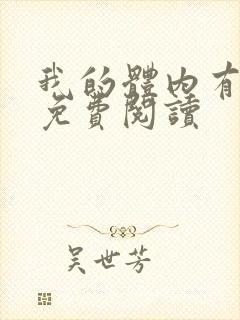 我的體內有
免費閱讀
吳世芳